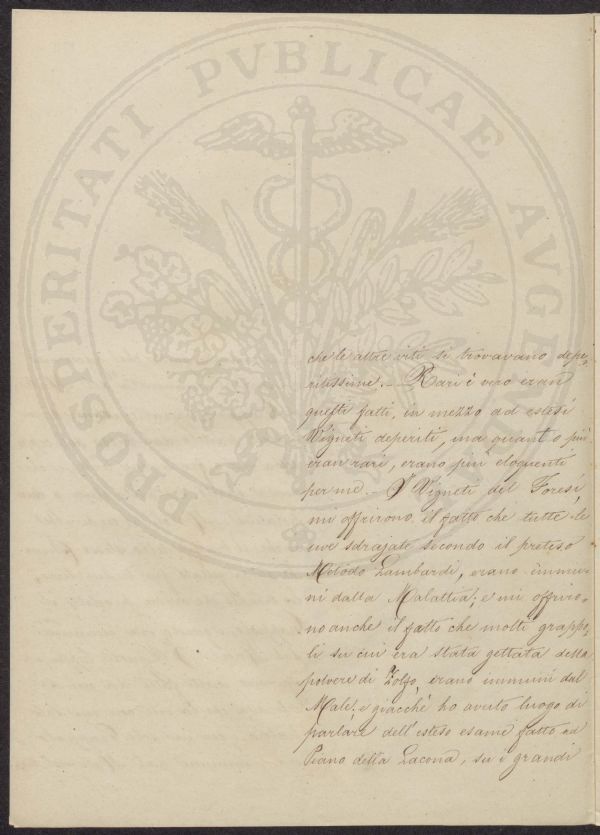 PROSPERITATI PVBLICAE AVGENDAE
che le altre viti si trovavano depe,
ritissime. - Rari è vero eran
questi fatti, in mezzo ad estesi
Vigneti deperiti, ma quanto più
eran rari, erano più eloquenti
per me. - I Vigneti del Foresi,
mi offrirono il fatto che tutte le
uve sdrajate secondo il preteso
Metodo Lambardi, erano immu,
ni dalla Malattia; e mi offriro,
no anche il fatto che molti grappo,
li su cui era stata gettata della
polvere di Zolfo, erano immuni dal
Male; e giacchè ho avuto luogo di
parlare dell'esteso esame fatto ad
Piano della Lacona, su i grandi